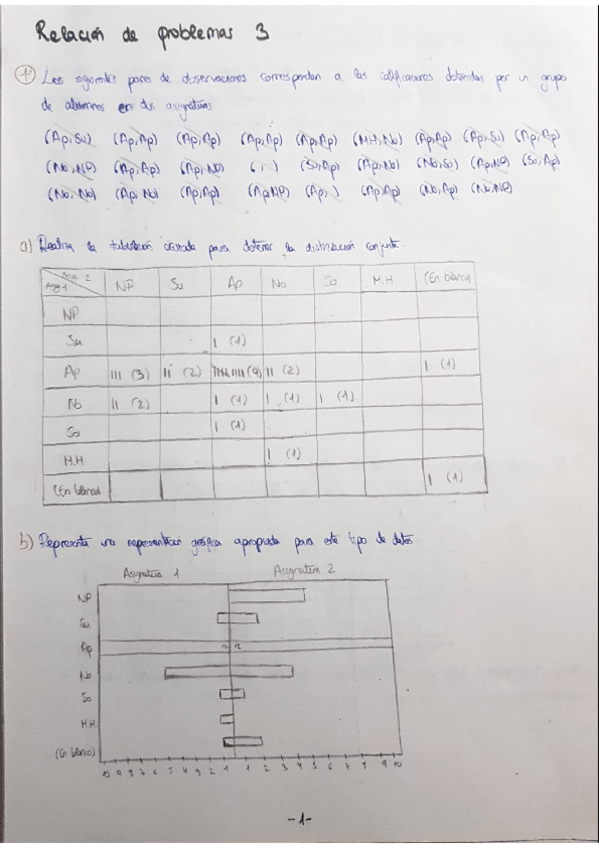 Relación de problemas 3
1º Los siguientes pares de observaciones corresponden a las calificaciones obtenidas por un grupo
de alumnos en dos asignaturas
(Ap,Su) (Ap,Ap) (Ap,Ap) (Ap,Ap) (Ap,Ap) (M.H,No) (Ap,Ap) (Ap,Su) (Ap,Ap)
(No,NP) (Ap,Ap) (Ap,NP) ( , ) (Su,Ap) (Ap,No) (No,So) (Ap,NP) (So,Ap)
(No,No) (Ap,No) (Ap,Ap) (Ap,NP) (Ap, ) (Ap,Ap) (No,Ap) (No,NP)
a) Realiza la tabulación cruzada para obtener la distribución conjunta.
Asig 2
Asig 1 NP Su Ap No So M.H (En blanco)
NP
Su I (1)
Ap III (3) II (2) IIII IIII (9) II (2) I (1)
No II (2) I (1) I (1) I (1)
So I (1)
M.H I (1)
(En blanco) I (1)
b) Representa una representación gráfica apropiada para este tipo de datos
Asignatura 1 Asignatura 2
NP
Su
Ap
No
So
M.H
(En blanco)
10 9 8 7 6 5 4 3 2 1 1 2 3 4 5 6 7 8 9 10
-1-